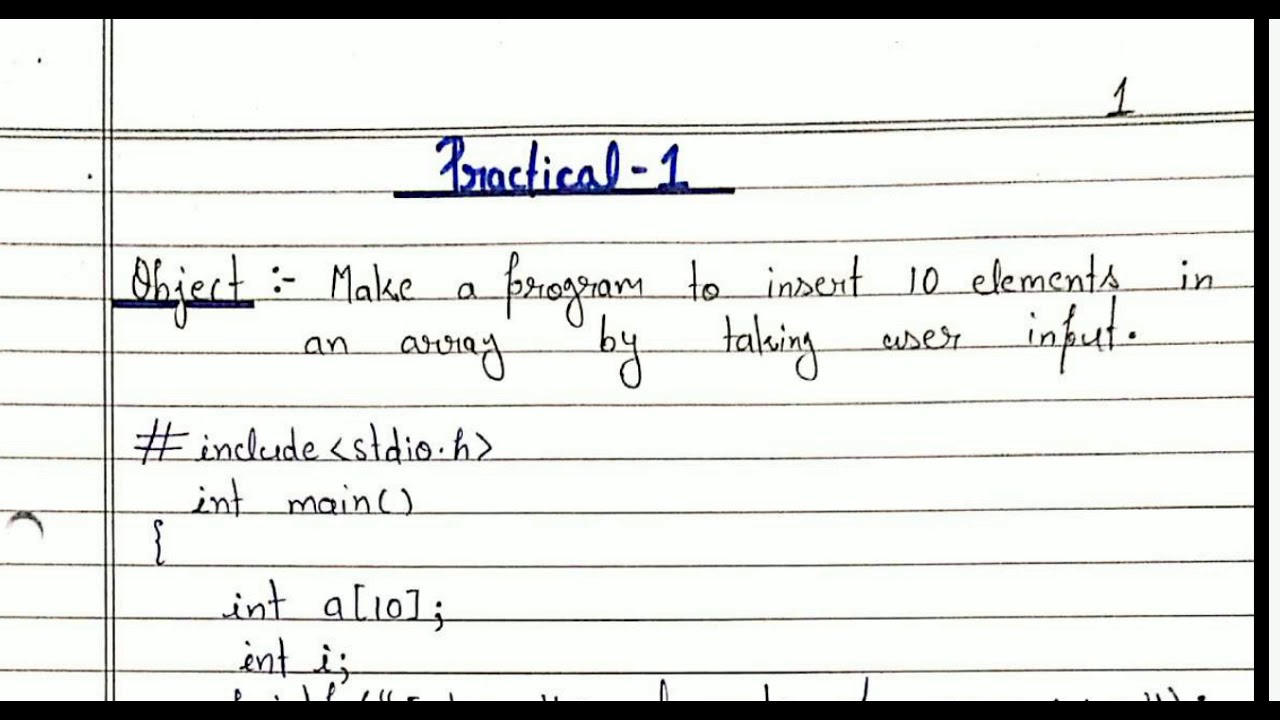 1
Practical-1
Object :- Make a program to insert 10 elements in
an array by taking user input.
# include <stdio.h>
int main()
{
int a[10];
int i;